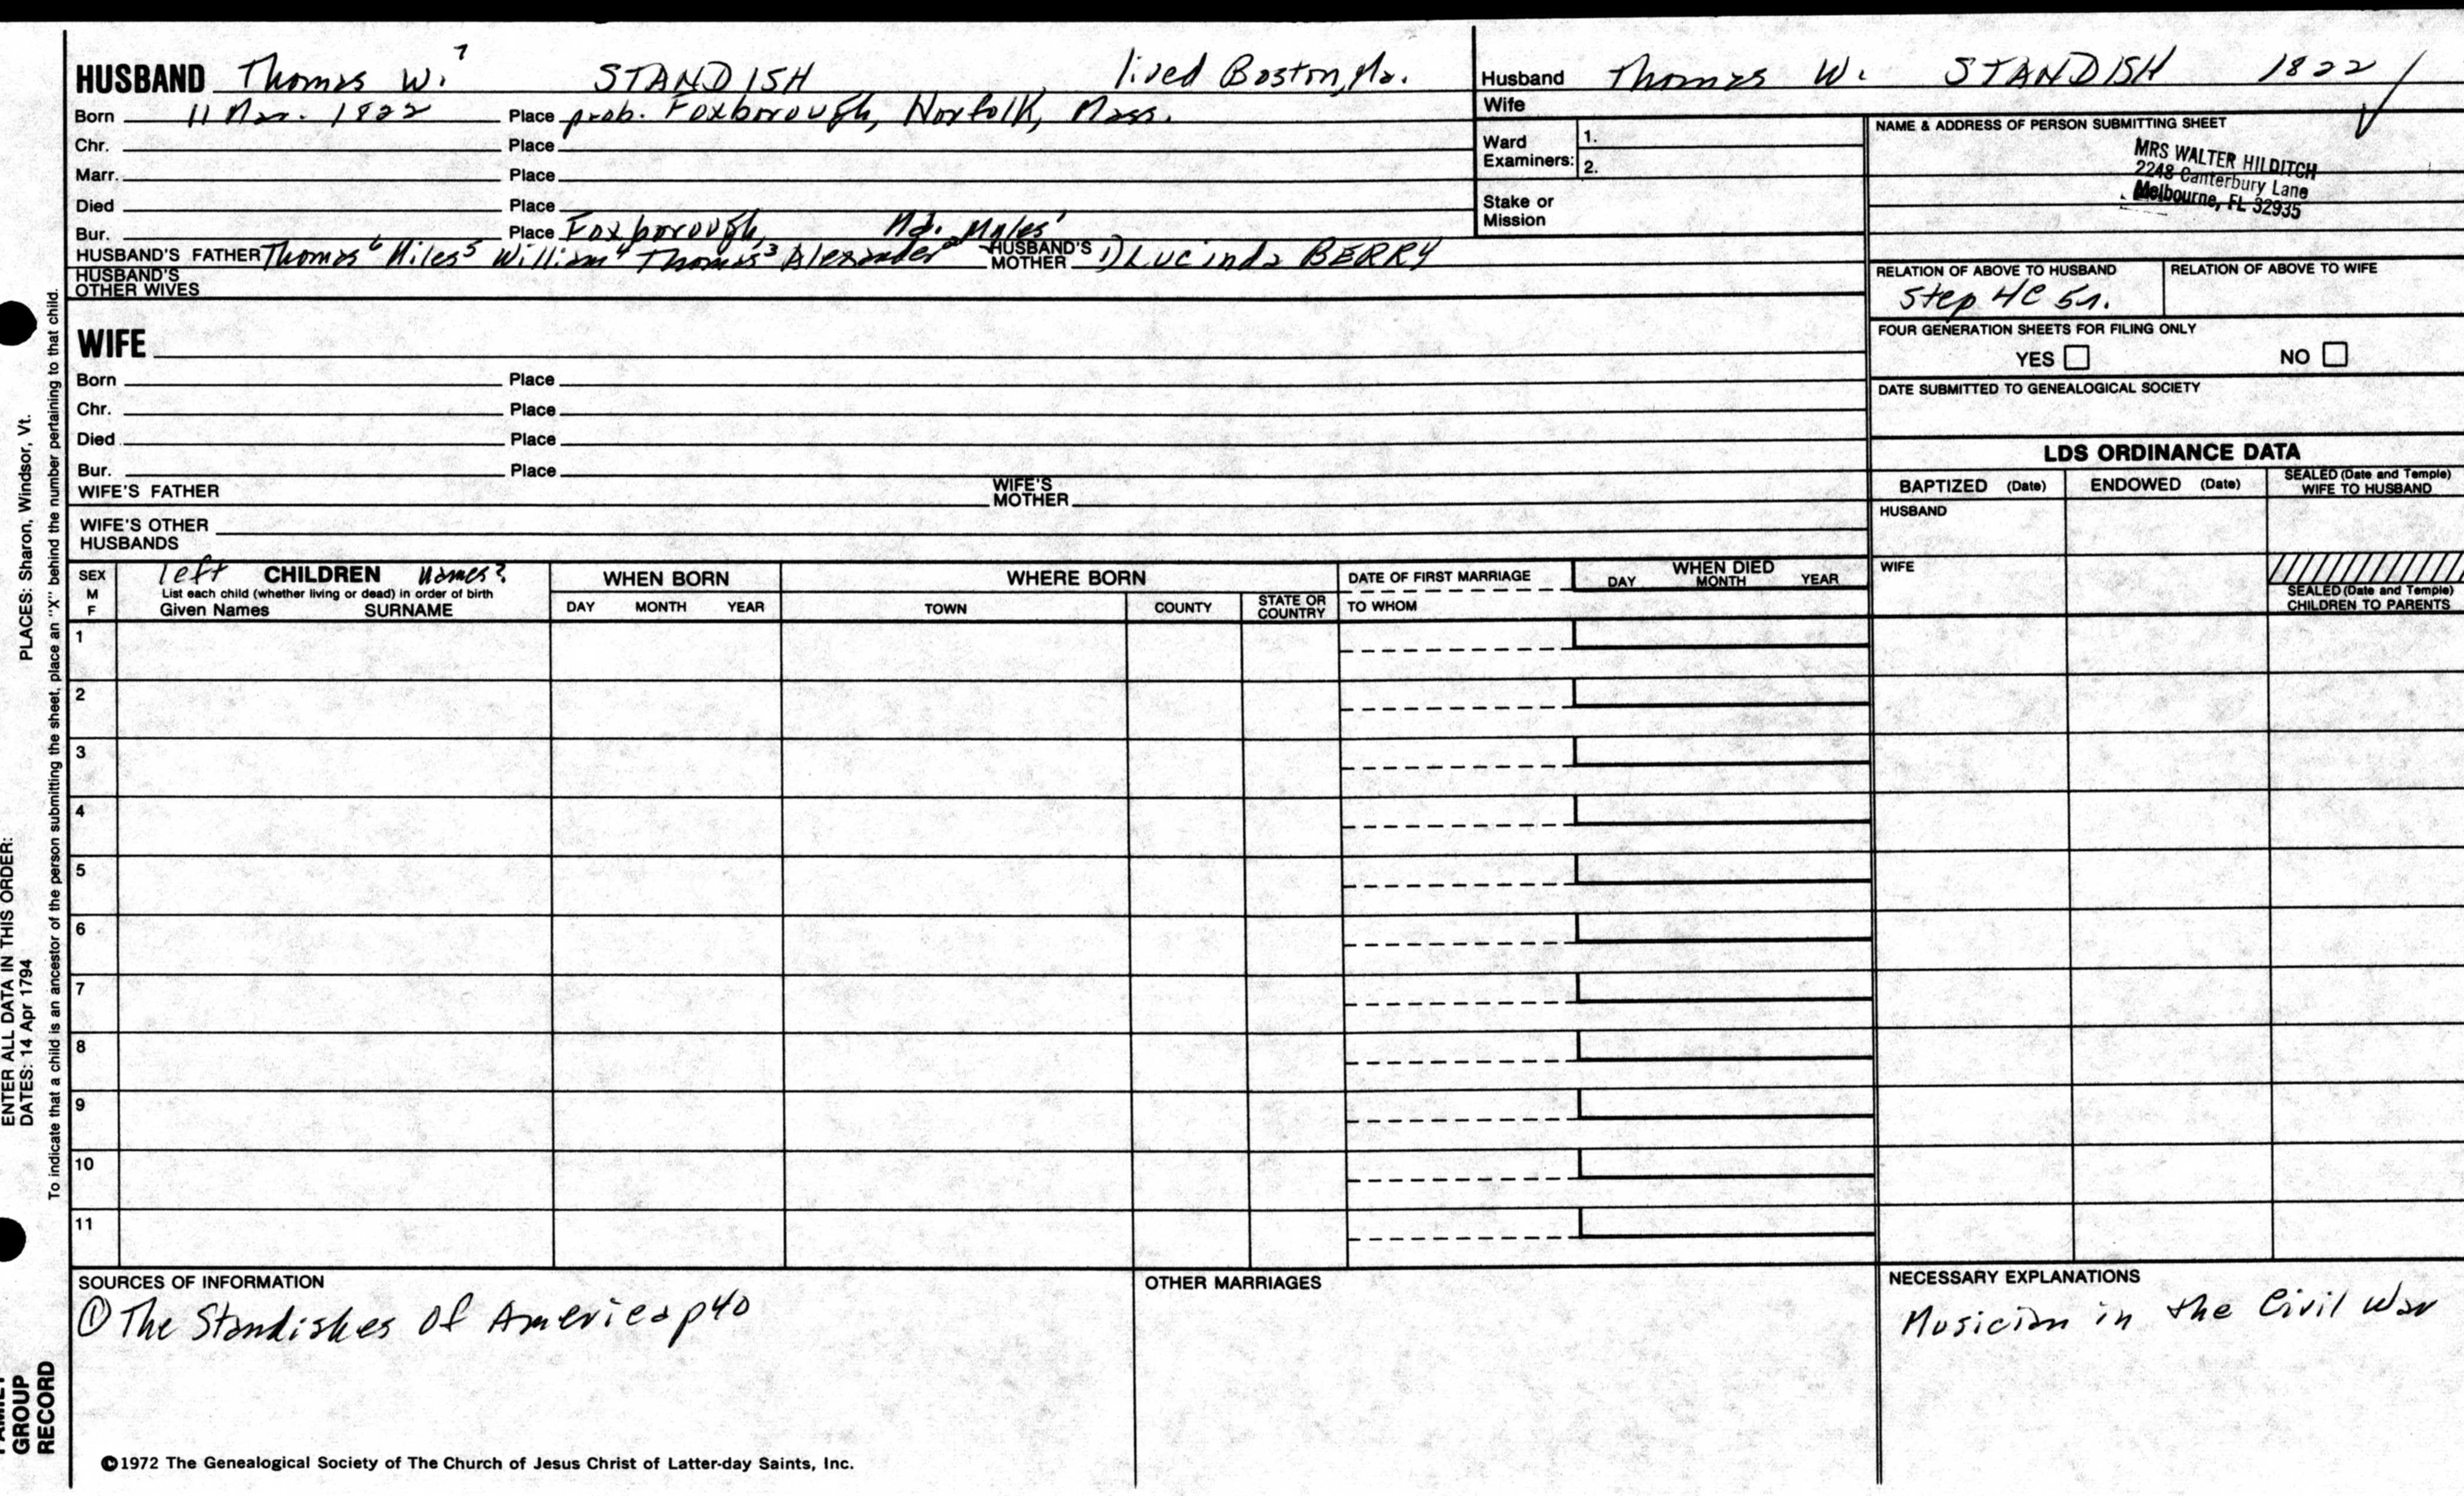 HUSBAND Thomas W.⁷ STANDISH lived Boston, Ma.
Born 11 Mar. 1822 Place prob. Foxborough, Norfolk, Mass.
Chr. Place
Marr. Place
Died Place
Bur. Place Foxborough, Ma. Myles¹
HUSBAND'S FATHER Thomas⁶ Miles⁵ William⁴ Thomas³ Alexander² HUSBAND'S MOTHER 1) Lucinda BERRY
HUSBAND'S OTHER WIVES
Husband Thomas W. STANDISH 1822 /
Wife
Ward Examiners: 1.
2.
Stake or Mission
NAME & ADDRESS OF PERSON SUBMITTING SHEET
MRS WALTER HILDITCH
2248 Canterbury Lane
Melbourne, FL 32935
RELATION OF ABOVE TO HUSBAND RELATION OF ABOVE TO WIFE
Step 4C 5r.
FOUR GENERATION SHEETS FOR FILING ONLY
YES NO
DATE SUBMITTED TO GENEALOGICAL SOCIETY
WIFE
Born Place
Chr. Place
Died Place
Bur. Place
WIFE'S FATHER WIFE'S MOTHER
WIFE'S OTHER HUSBANDS
LDS ORDINANCE DATA
BAPTIZED (Date) ENDOWED (Date) SEALED (Date and Temple) WIFE TO HUSBAND
HUSBAND
WIFE
SEALED (Date and Temple) CHILDREN TO PARENTS
SEX M F
left CHILDREN names?
List each child (whether living or dead) in order of birth
Given Names SURNAME
WHEN BORN
DAY MONTH YEAR
WHERE BORN
TOWN COUNTY STATE OR COUNTRY
DATE OF FIRST MARRIAGE
TO WHOM
WHEN DIED
DAY MONTH YEAR
1
2
3
4
5
6
7
8
9
10
11
SOURCES OF INFORMATION
① The Standishes of America p40
OTHER MARRIAGES
NECESSARY EXPLANATIONS
Musician in the Civil War
©1972 The Genealogical Society of The Church of Jesus Christ of Latter-day Saints, Inc.
To indicate that a child is an ancestor of the person submitting the sheet, place an "X" behind the number pertaining to that child.
ENTER ALL DATA IN THIS ORDER:
DATES: 14 Apr 1794 PLACES: Sharon, Windsor, Vt.
GROUP
RECORD